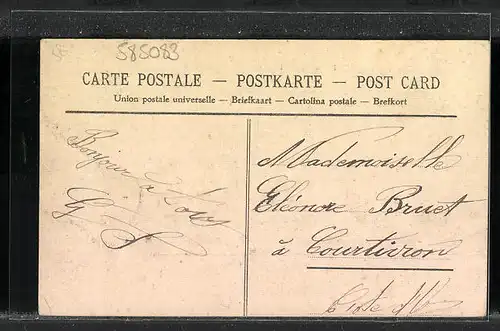 585083
CARTE POSTALE — POSTKARTE — POST CARD
Union postale universelle — Briefkaart — Cartolina postale — Brefkort
Bonjour à tous
G S
Mademoiselle
Eléonore Bruet
à Courtivron
Cote